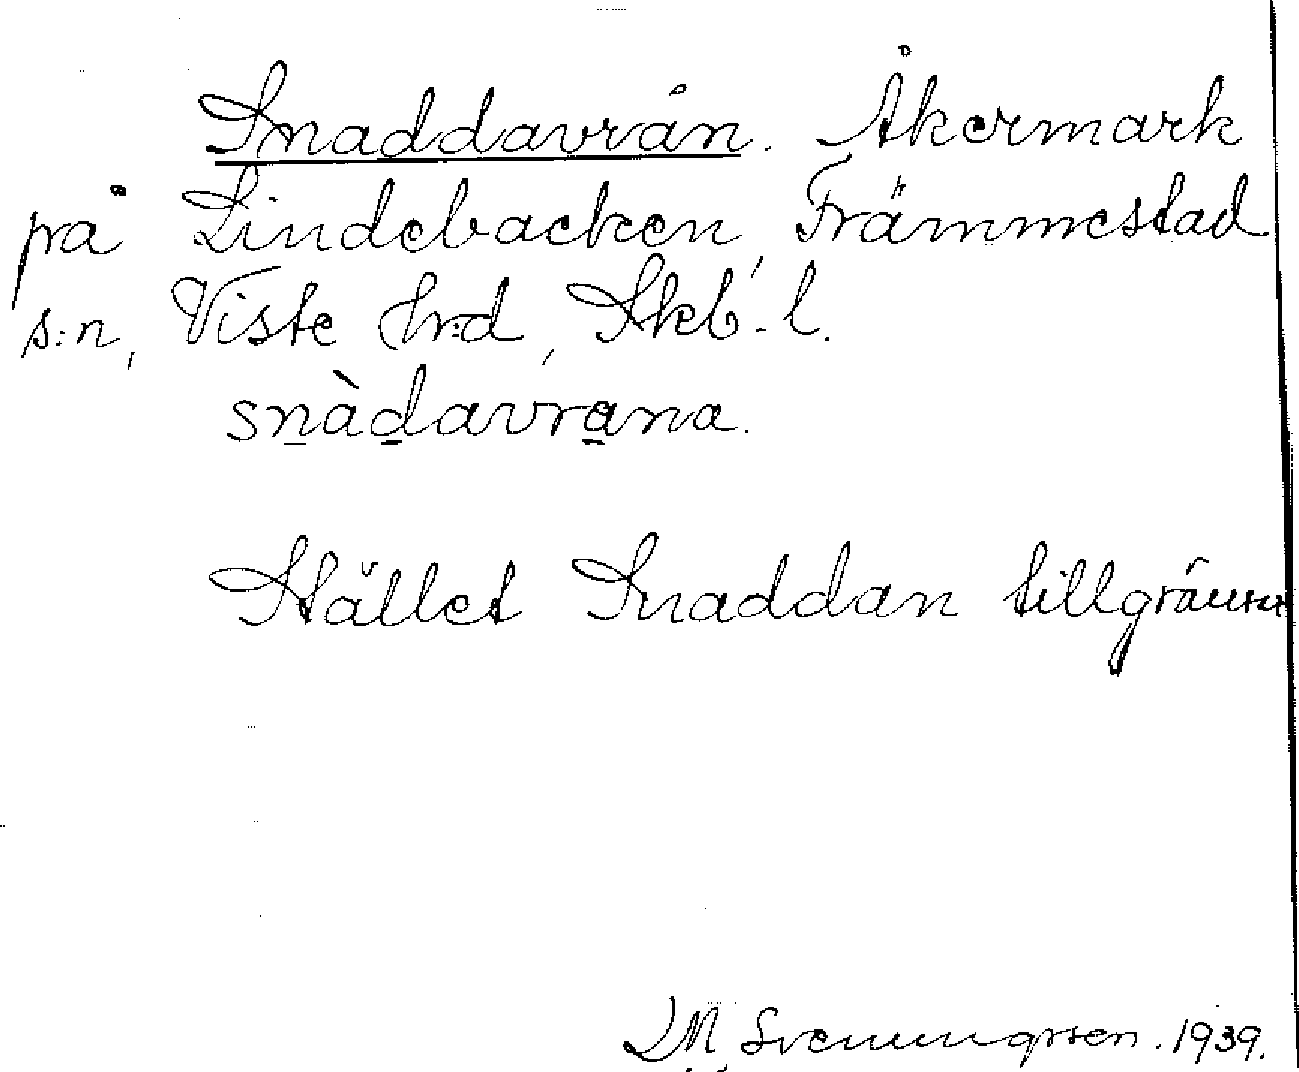 Snaddavrån. Åkermark
på Lindebacken, Främmestad
s:n, Viste hrd, Skb. l.
snàdavrana.
Stället Snaddan tillgräns
M. Svenungsson. 1939.